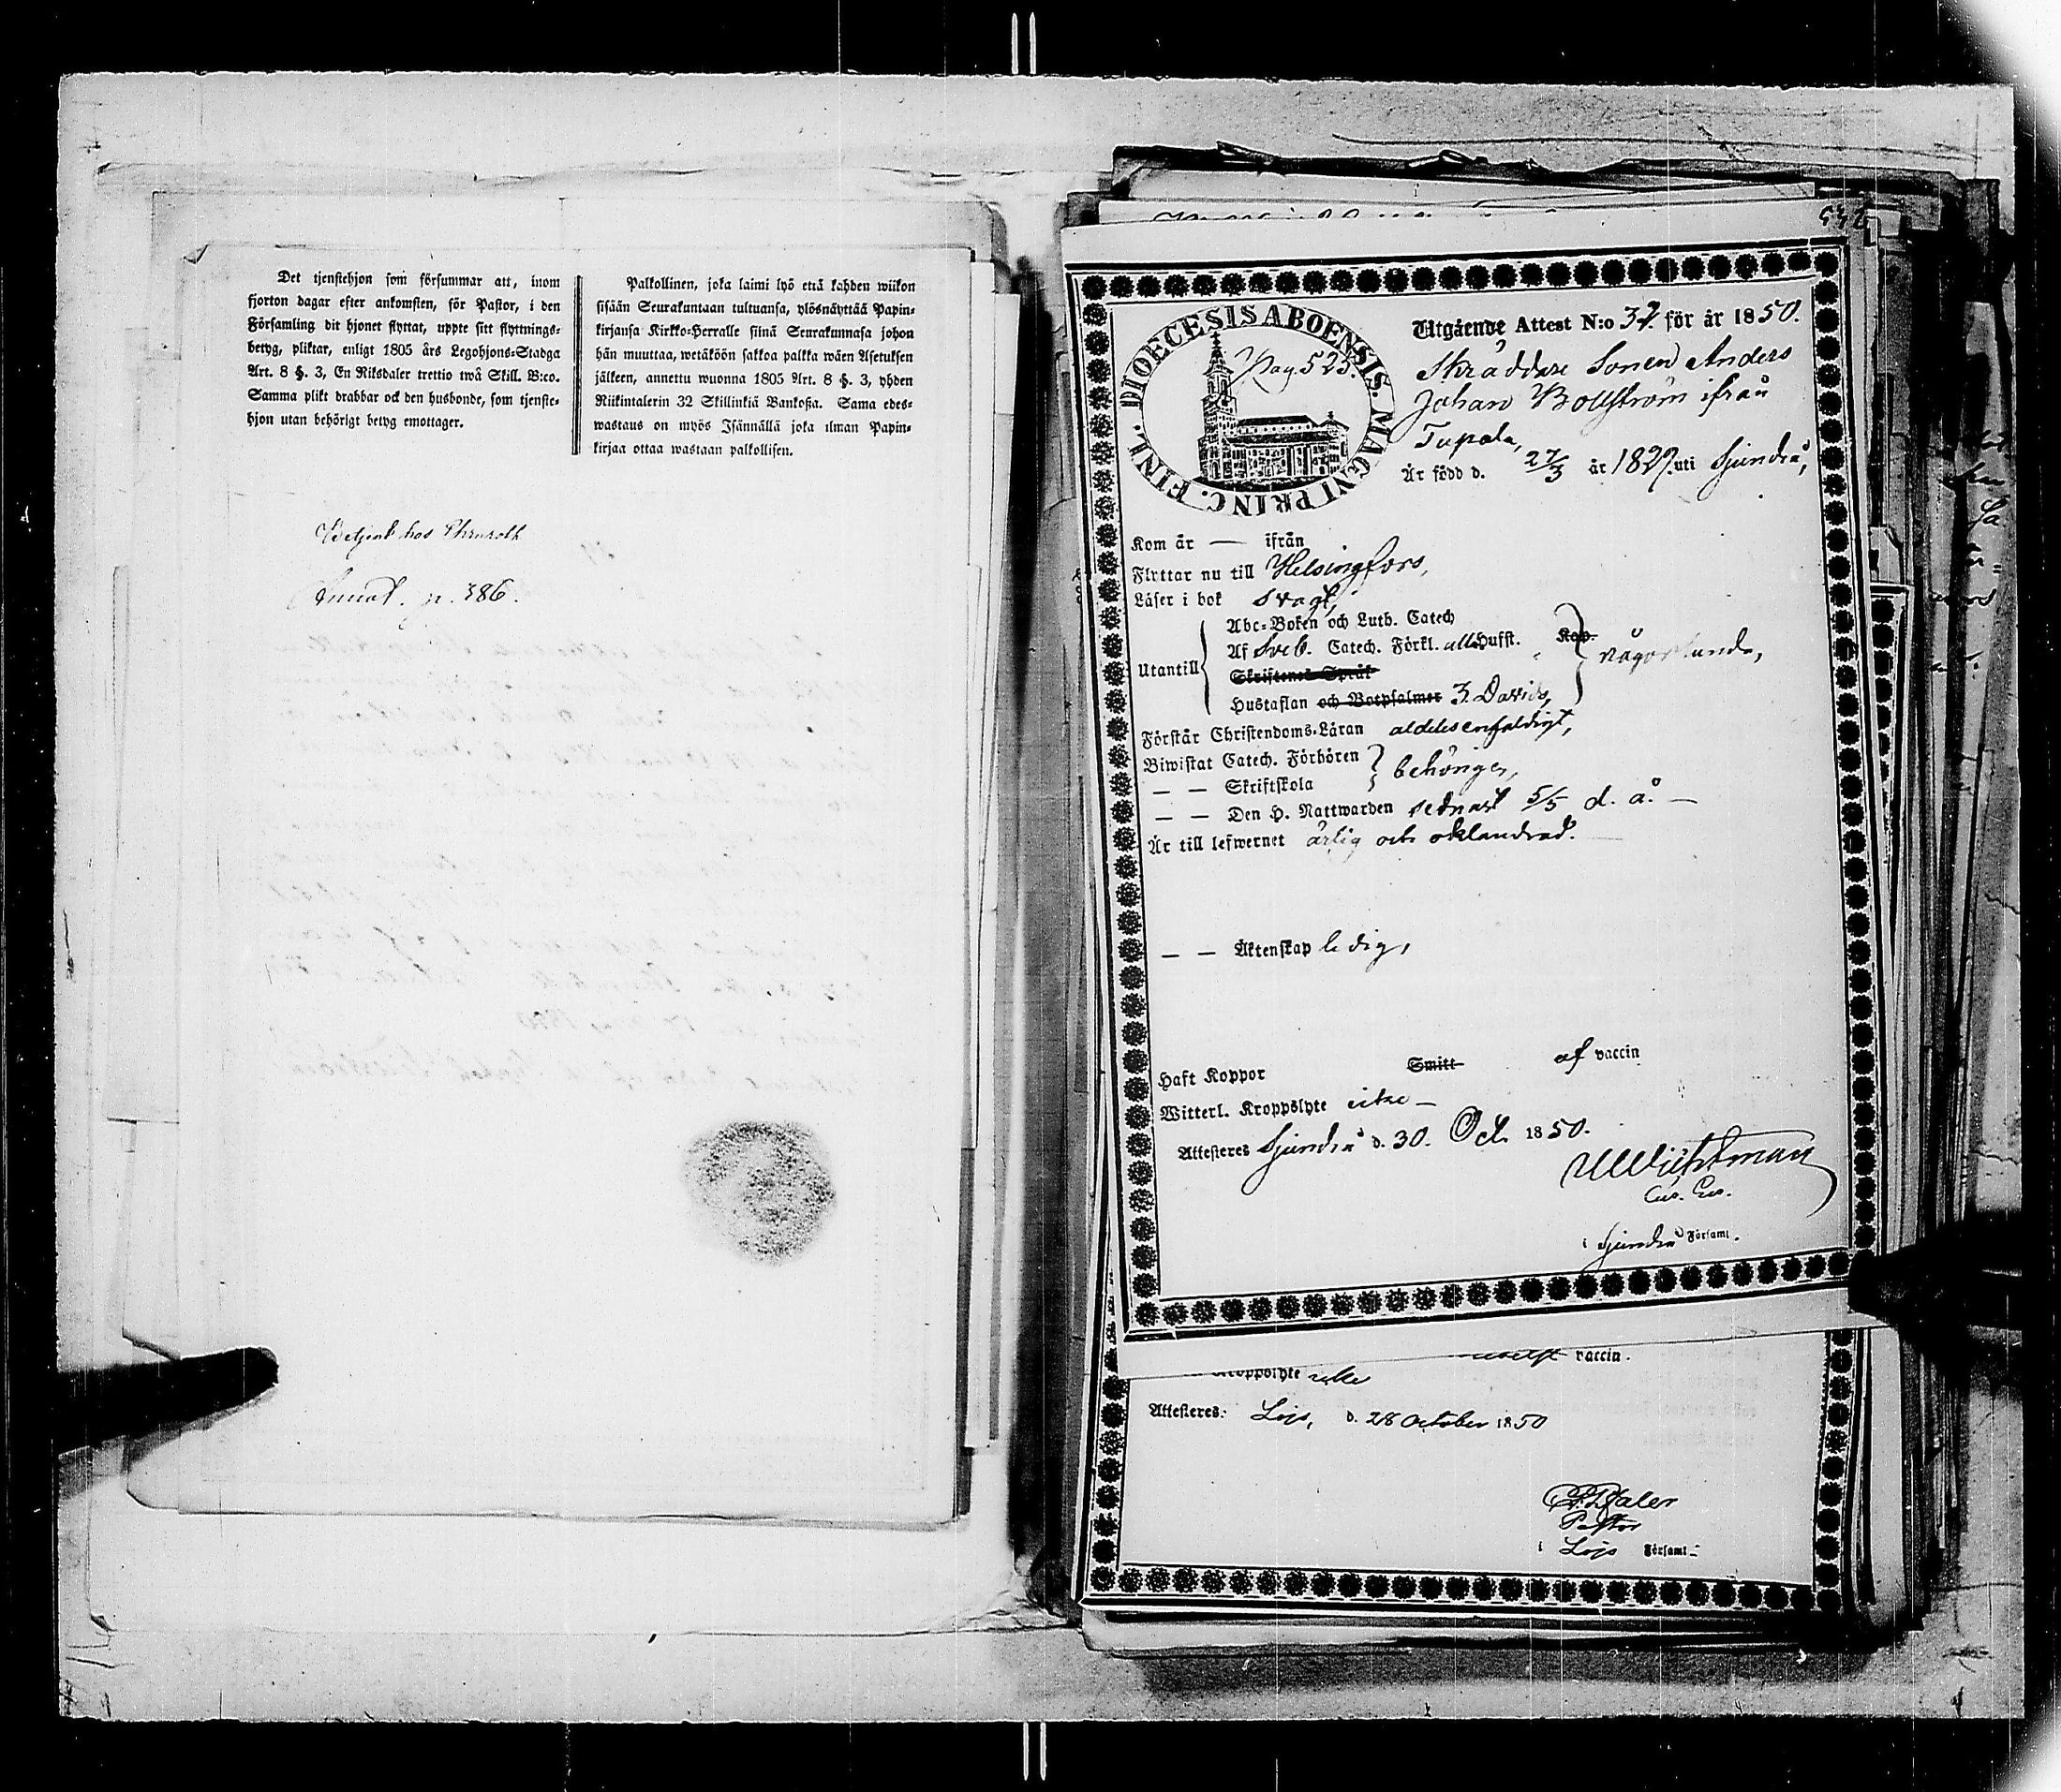 Det tjenstehjon som försummar att, inom
fjorton dagar efter ankomsten, för Pastor, i den
Församling dit hjonet flyttat, uppte sitt flyttnings-
betyg, pliktar, enligt 1805 års Legohjons-Stadga
Art. 8 §. 3, En Riksdaler trettio twå Skill. B:co.
Samma plikt drabbar ock den husbonde, som tjenste-
hjon utan behörigt betyg emottager.
Palkollinen, joka laimi lyö että kahden wiikon
sisään Seurakuntaan tultuansa, ylösnäyttää Papin-
kirjansa Kirkko-Herralle siinä Seurakunnasa johon
hän muuttaa, wetäköön sakkoa palkka wäen Asetuksen
jälkeen, annettu wuonna 1805 Art. 8 §. 3, yhden
Riikintalerin 32 Skillinkiä Bankosa. Sama edes-
wastaus on myös Isännällä joka ilman Papin-
kirjaa ottaa wastaan palkollisen.
hos
p. 386.
DIOECESIS ABOENSIS. MAGNI PRINC. FINL.
Pag. 523.
Utgående Attest N:o 37. för år 1850.
Skräddare Sonen Anders
Johan Bollström ifrån
Tupala,
Är född d. 27/3 år 1829. uti Sjundeå,
Kom år — ifrån
Flyttar nu till Helsingfors,
Läser i bok svagt,
Utantill
Abc-Boken och Luth. Catech
Af Sveb. Catech. Förkl. alla Hufst. Kap.
Skriftenes Språk
Hustaflan och Botpsalmer 3. Davids,
någorlunda,
Förstår Christendoms-Läran aldeles enfaldigt,
Biwistat Catech. Förhören
— — Skriftskola
behörigen,
— — Den H. Nattwarden sednast 5/5 d. å. —
Är till lefwernet ärlig och oklandrad.
— — Äktenskap ledig,
Haft Koppor Smitt af vaccin
Witterl. Kroppslyte icke —
Attesteres Sjundeå d. 30. Oct. 1850.
Wichtman
i Sjundeå Församl.
vaccin.
Kroppslyte icke
Attesteres. Lojo, d. 28 October 1850
Pastor
i Lojo Församl.